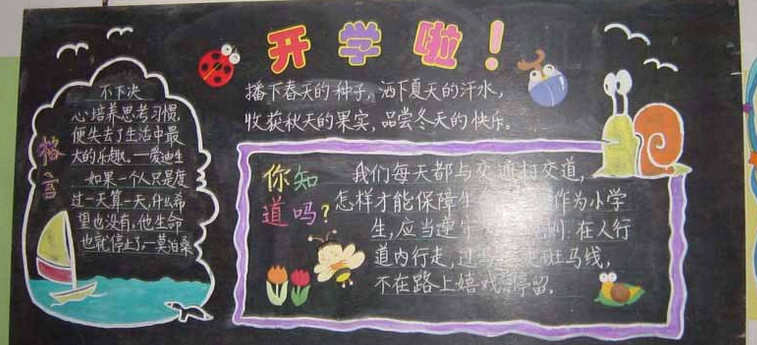 开学啦！
播下春天的种子，洒下夏天的汗水，
收获秋天的果实，品尝冬天的快乐。
格言
不下决
心培养思考习惯，
便失去了生活中最
大的乐趣。—爱迪生
如果一个人只是度
过一天算一天，什么希
望也没有，他生命
也就停止了—莫泊桑
你知
道吗？
我们每天都与交通打交道，
怎样才能保障生 作为小学
生，应当遵守 ：在人行
道内行走，过 走斑马线，
不在路上嬉戏、停留。